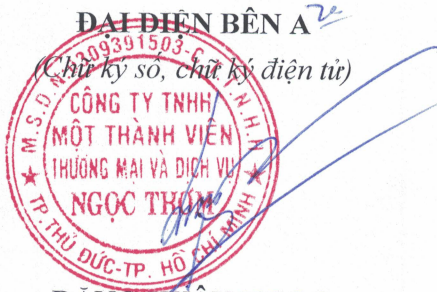 ĐẠI ĐIỆN BÊN A
(Chữ ký số, chữ ký điện tử)
M.S.D.N: 0309391503-C.T.T.N.H.H
CÔNG TY TNHH
MỘT THÀNH VIÊN
THƯƠNG MẠI VÀ DỊCH VỤ
NGỌC THƠM
TP. THỦ ĐỨC-TP. HỒ CHÍ MINH